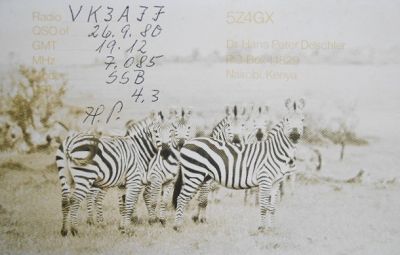 Radio VK3AJJ
QSO of 26.9.80
GMT 19.12
MHz 7.085
SSB
4.3
H.P.
5Z4GX
Dr. Hans Peter Deischler
Nairobi, Kenya